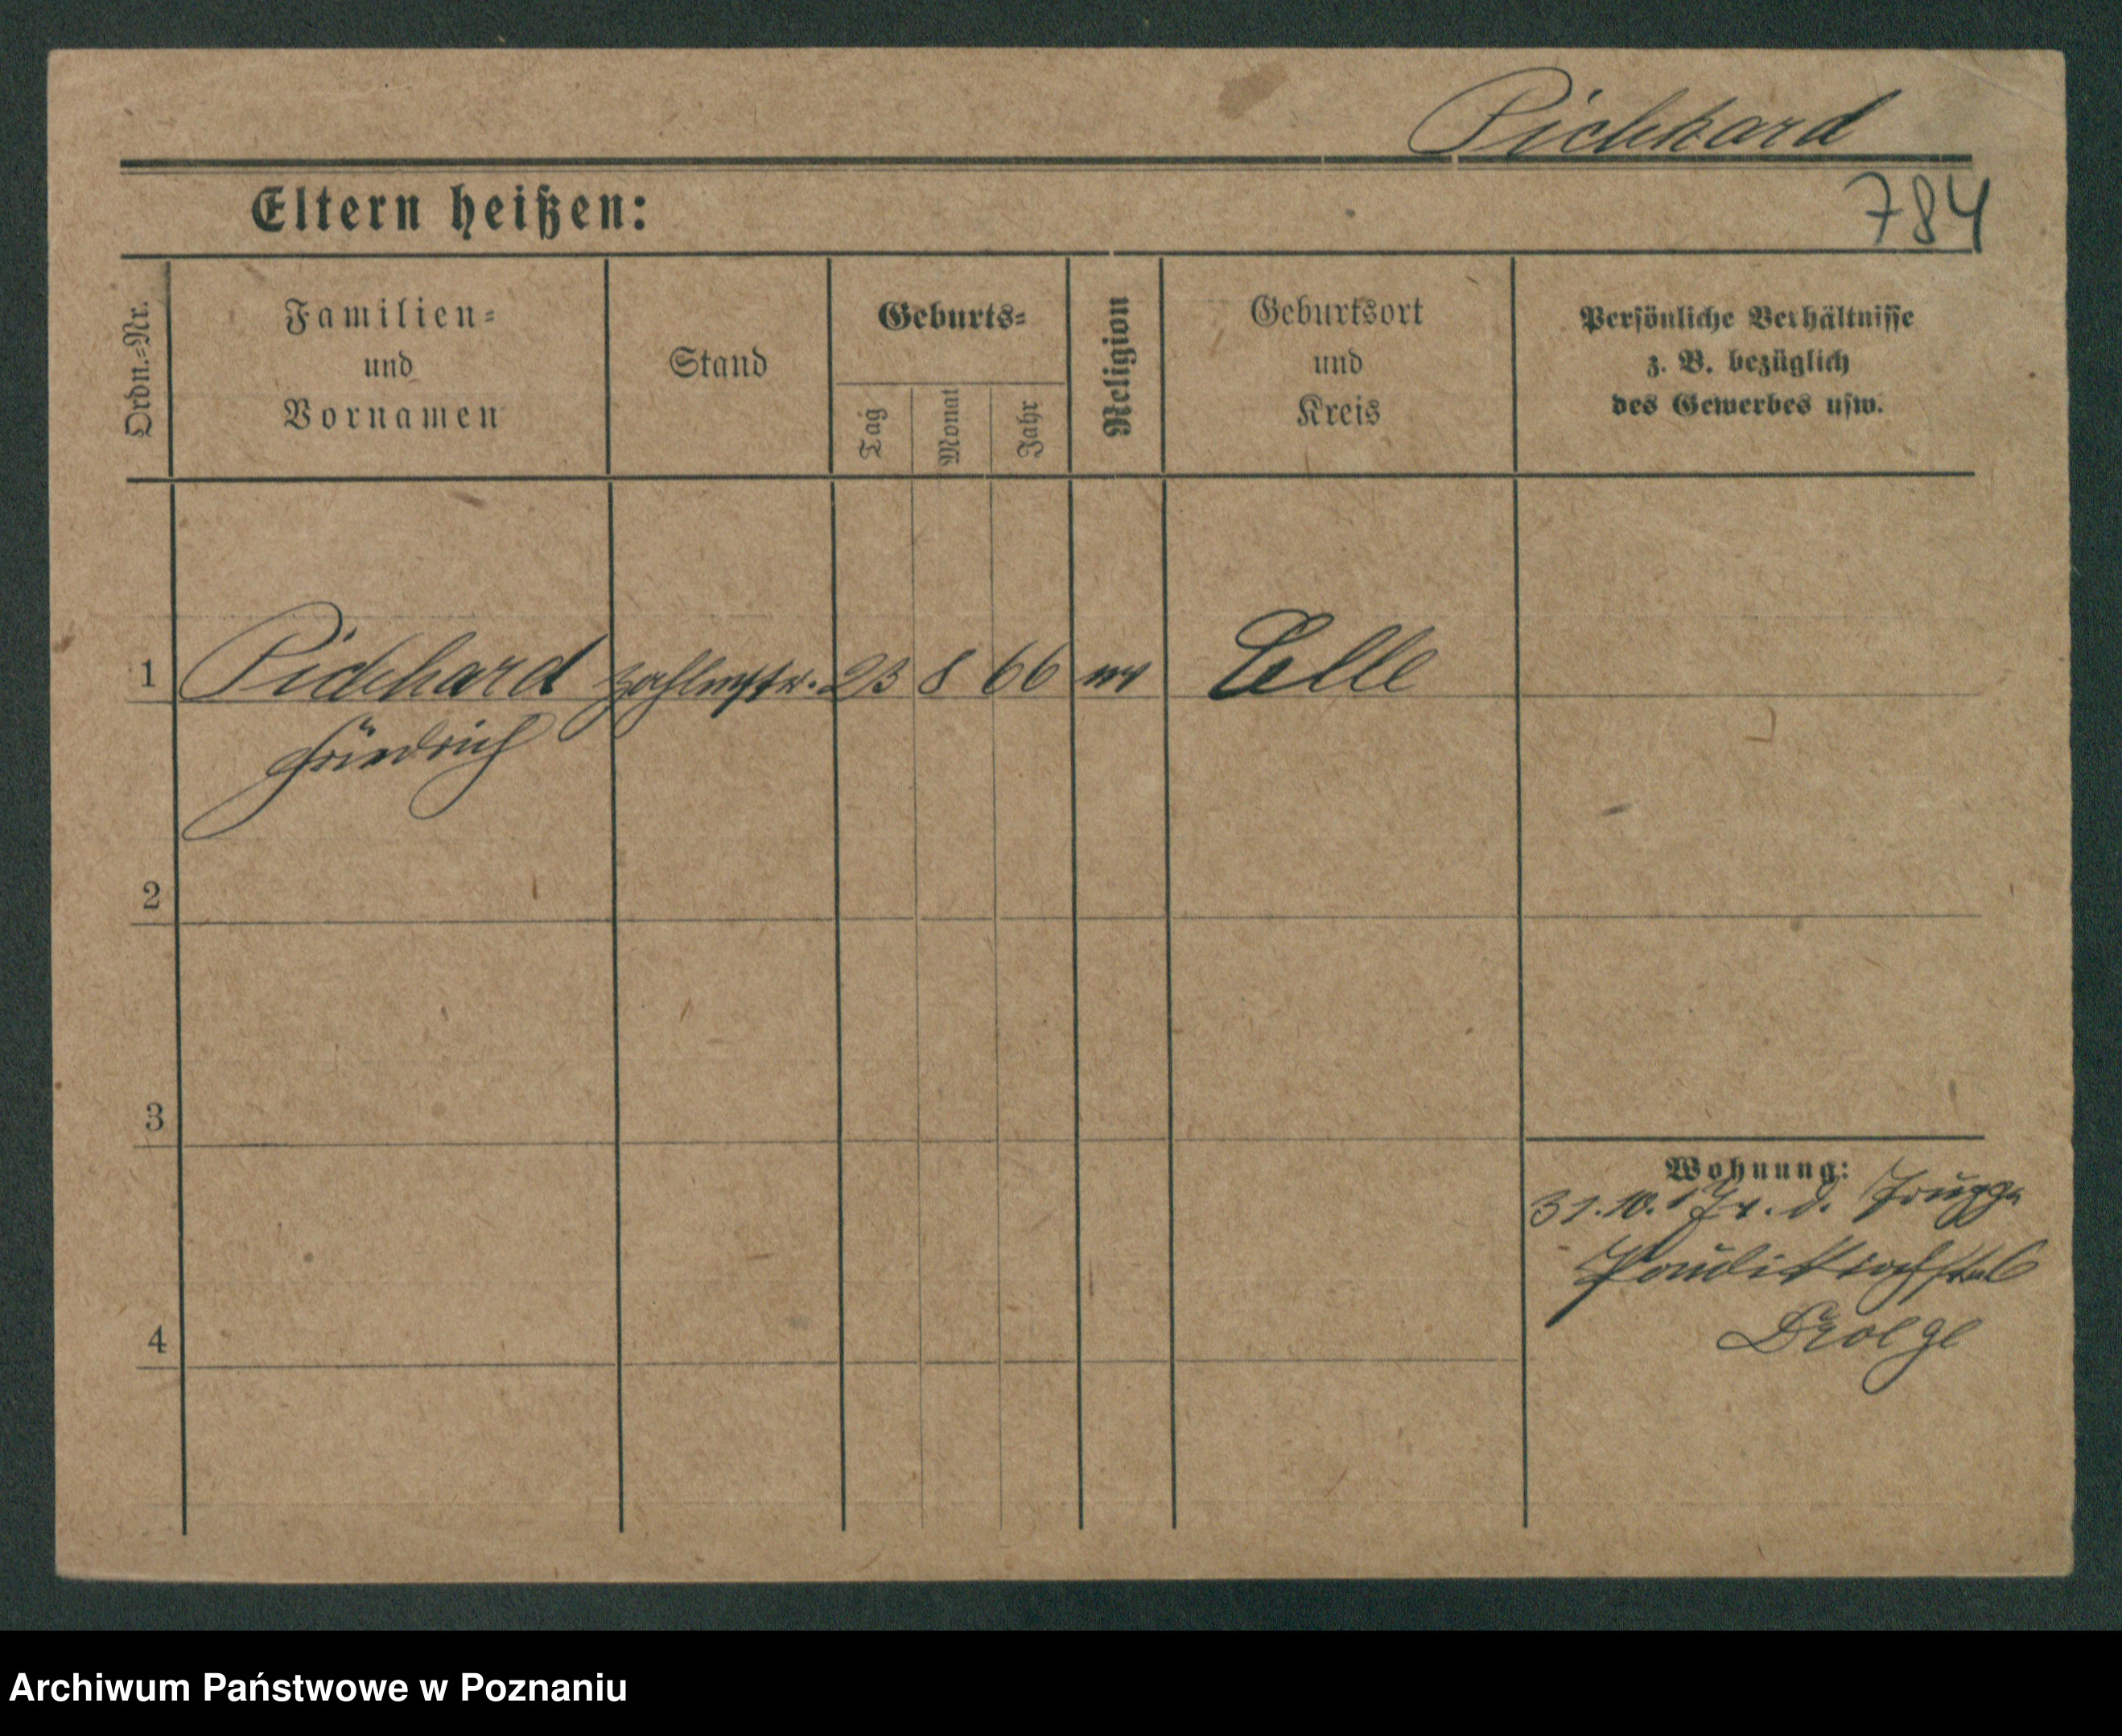 Pickhard
784
Eltern heißen:
Ordn.=Nr.
Familien=
und
Vornamen
Stand
Geburts=
Tag
Monat
Jahr
Religion
Geburtsort
und
Kreis
Persönliche Verhältnisse
z. B. bezüglich
des Gewerbes usw.
1 Pickhard Zahlmstr. 23 8 66 Celle
Friedrich
2
3
4
Wohnung:
31.10. v. d.
Paulikirchstr
Archiwum Państwowe w Poznaniu